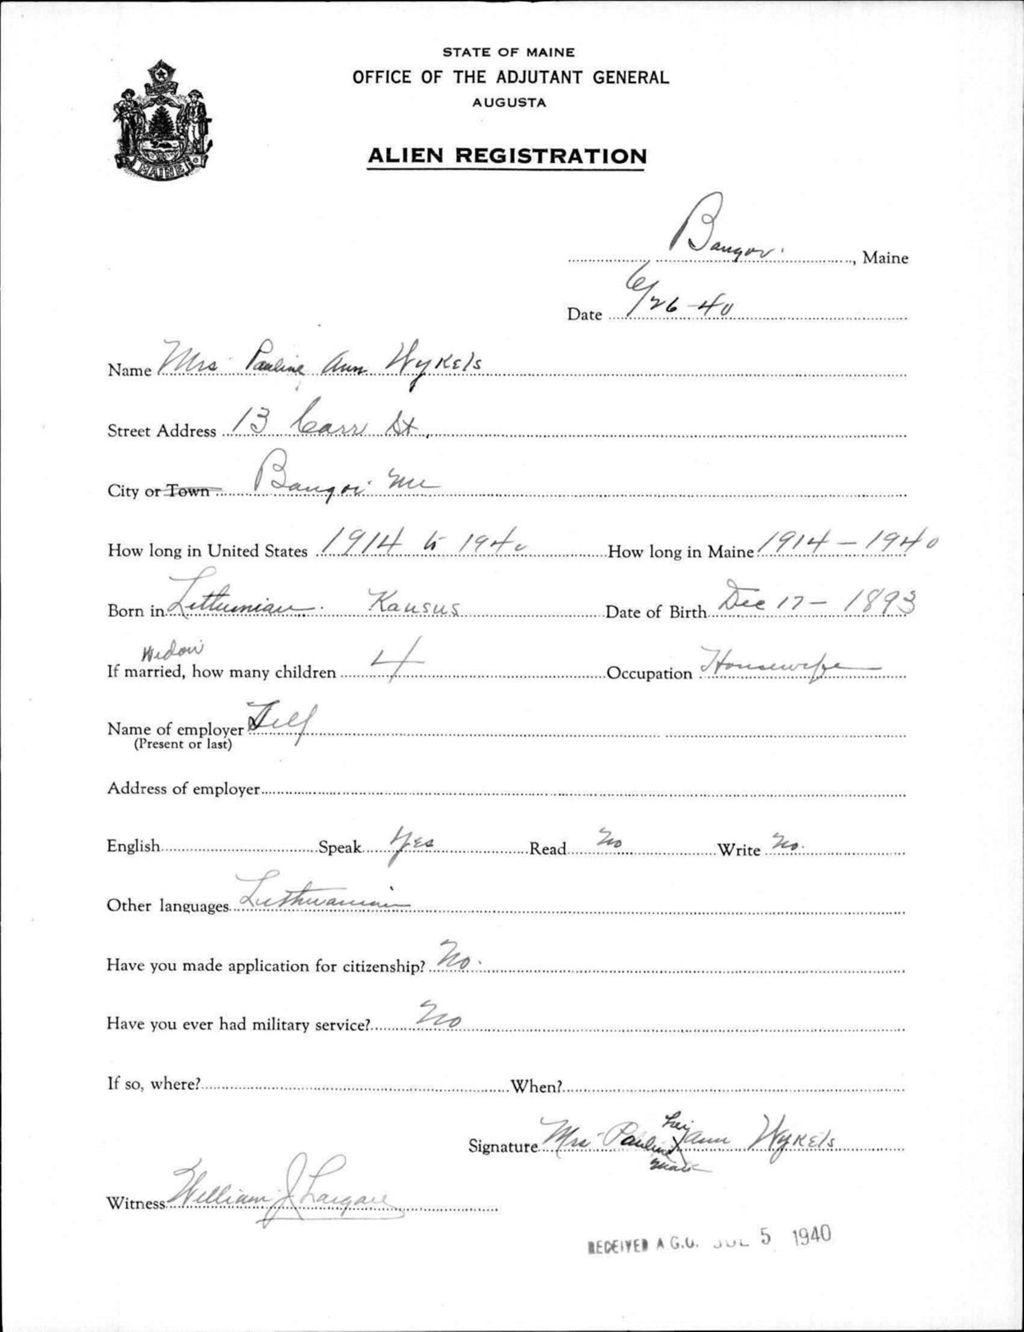 STATE OF MAINE
OFFICE OF THE ADJUTANT GENERAL
AUGUSTA
ALIEN REGISTRATION
MAINE
Bangor, Maine
Date 6/26-40
Name Mrs Pauline Ann Wykels
Street Address 13 Carr St,
City or Town Bangor Me
How long in United States 1914 to 1940 How long in Maine 1914-1940
Born in Kansus Date of Birth Dec 17-1893
Widow
If married, how many children 4 Occupation Housewife
Name of employer Self
(Present or last)
Address of employer
English Speak Yes Read No Write No.
Other languages Luthuanian
Have you made application for citizenship? No.
Have you ever had military service? No
If so, where? When?
her
Signature Mrs Pauline X Ann Wykels
mark
Witness William J
RECEIVED A.G.O. JUL 5 1940